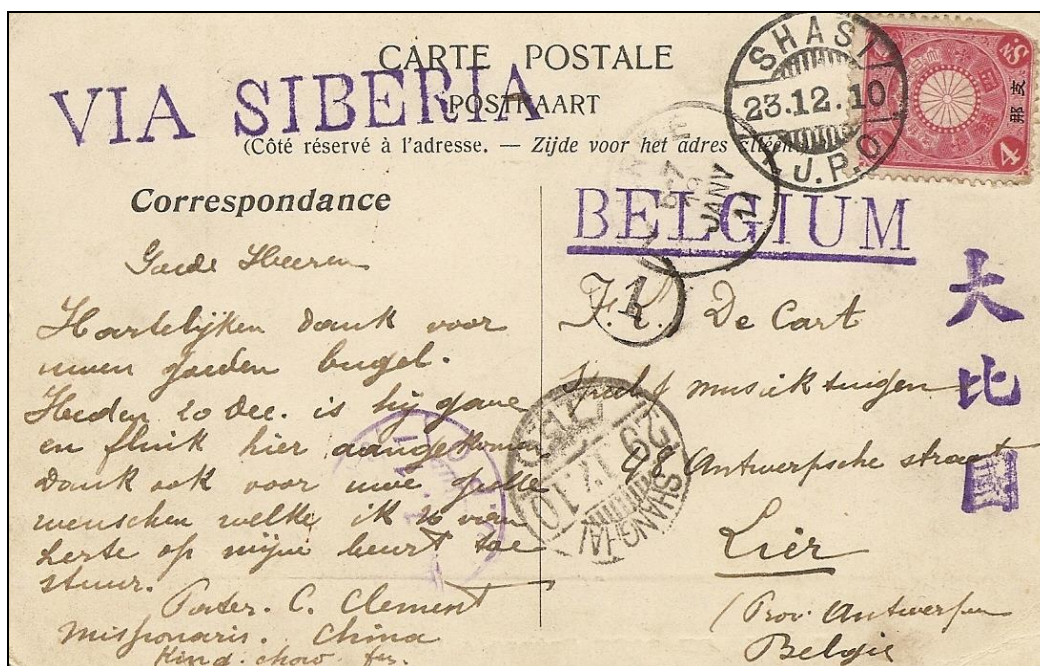 CARTE POSTALE
VIA SIBERIA
POSTKAART
(Côté réservé à l'adresse. — Zijde voor het adres alleen
SHASI
23.12.10
I.J.P.O
4
Sn
支那
6-7
19
JANV
11
Correspondance
BELGIUM
大比國
1
Goede Heeren
Hartelijken dank voor
uwen goeden bugel.
Heden 20 Dec. is hij gave
en flink hier aangekomen
Dank ook voor uwe
menschen welke ik u van
herte op mijne beurt toe
stuur.
Pater. C. Clement
Missionaris. China
King. chow fu.
De Cart
musiektuigen
Antwerpsche straat
Lier
(Prov. Antwerpen
België
SHANGHAI
29.12.10